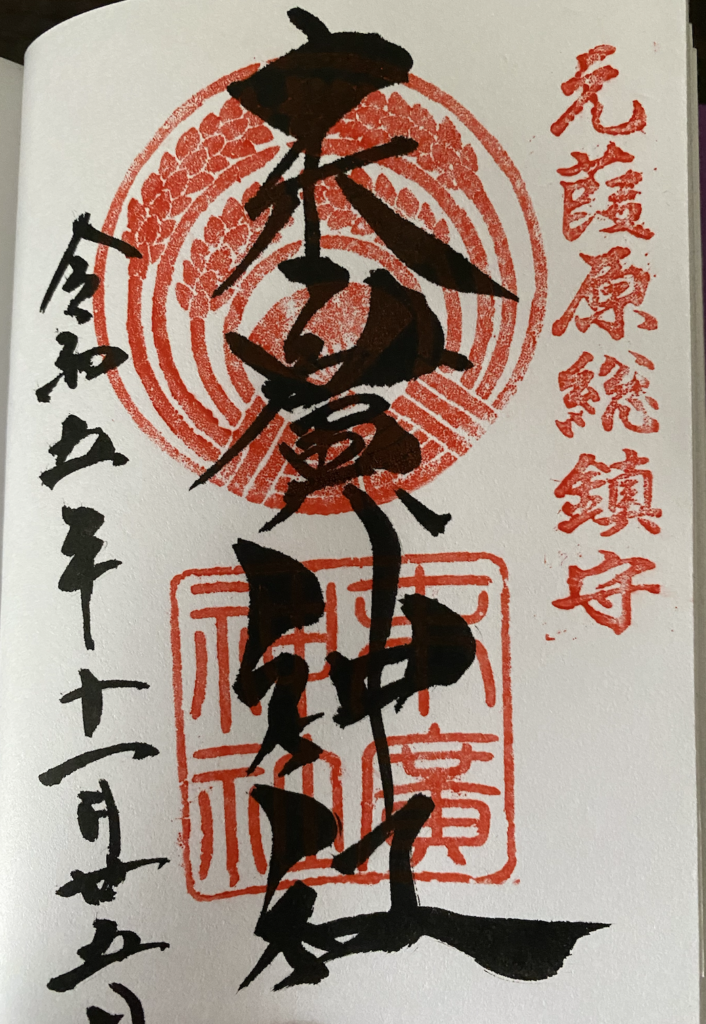 元葭原総鎮守
末廣神社
末廣
神社
令和五年十一月廿五日